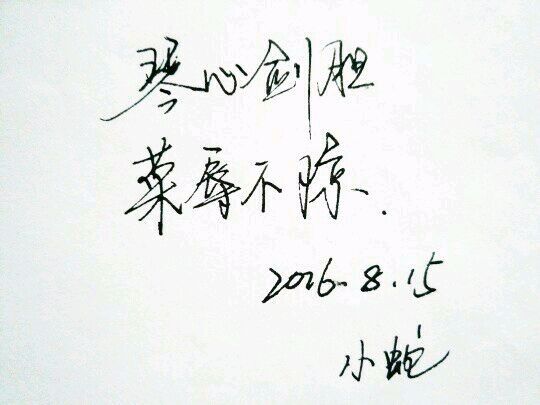 琴心剑胆
荣辱不惊.
2016.8.15
小蛇